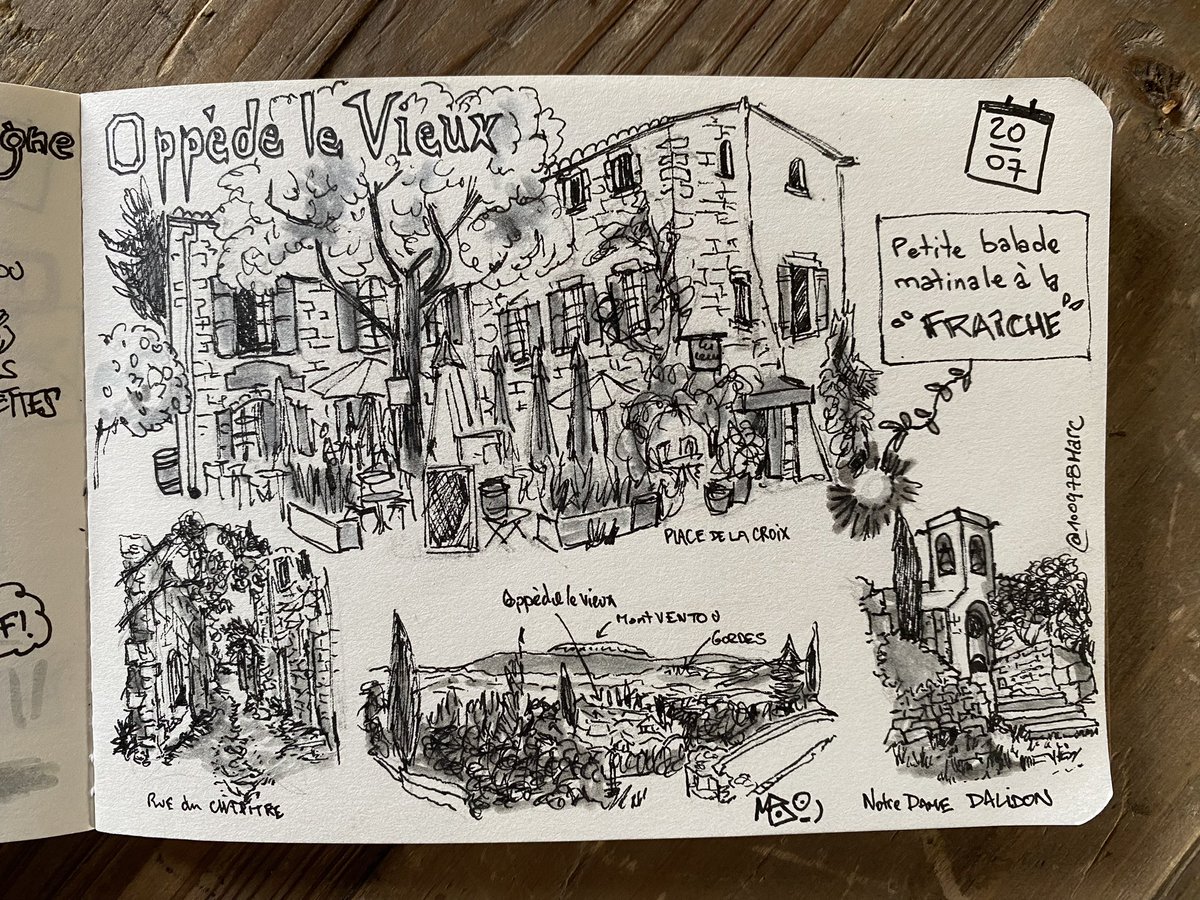 Oppède le Vieux
20
07
Petite balade
matinale à la
FRAÎCHE
@10097BMarc
PLACE DE LA CROIX
Oppède le vieux
Mont VENTOU
GORDES
Rue du CHAPITRE
Notre Dame DALIDON
ETTES
F!